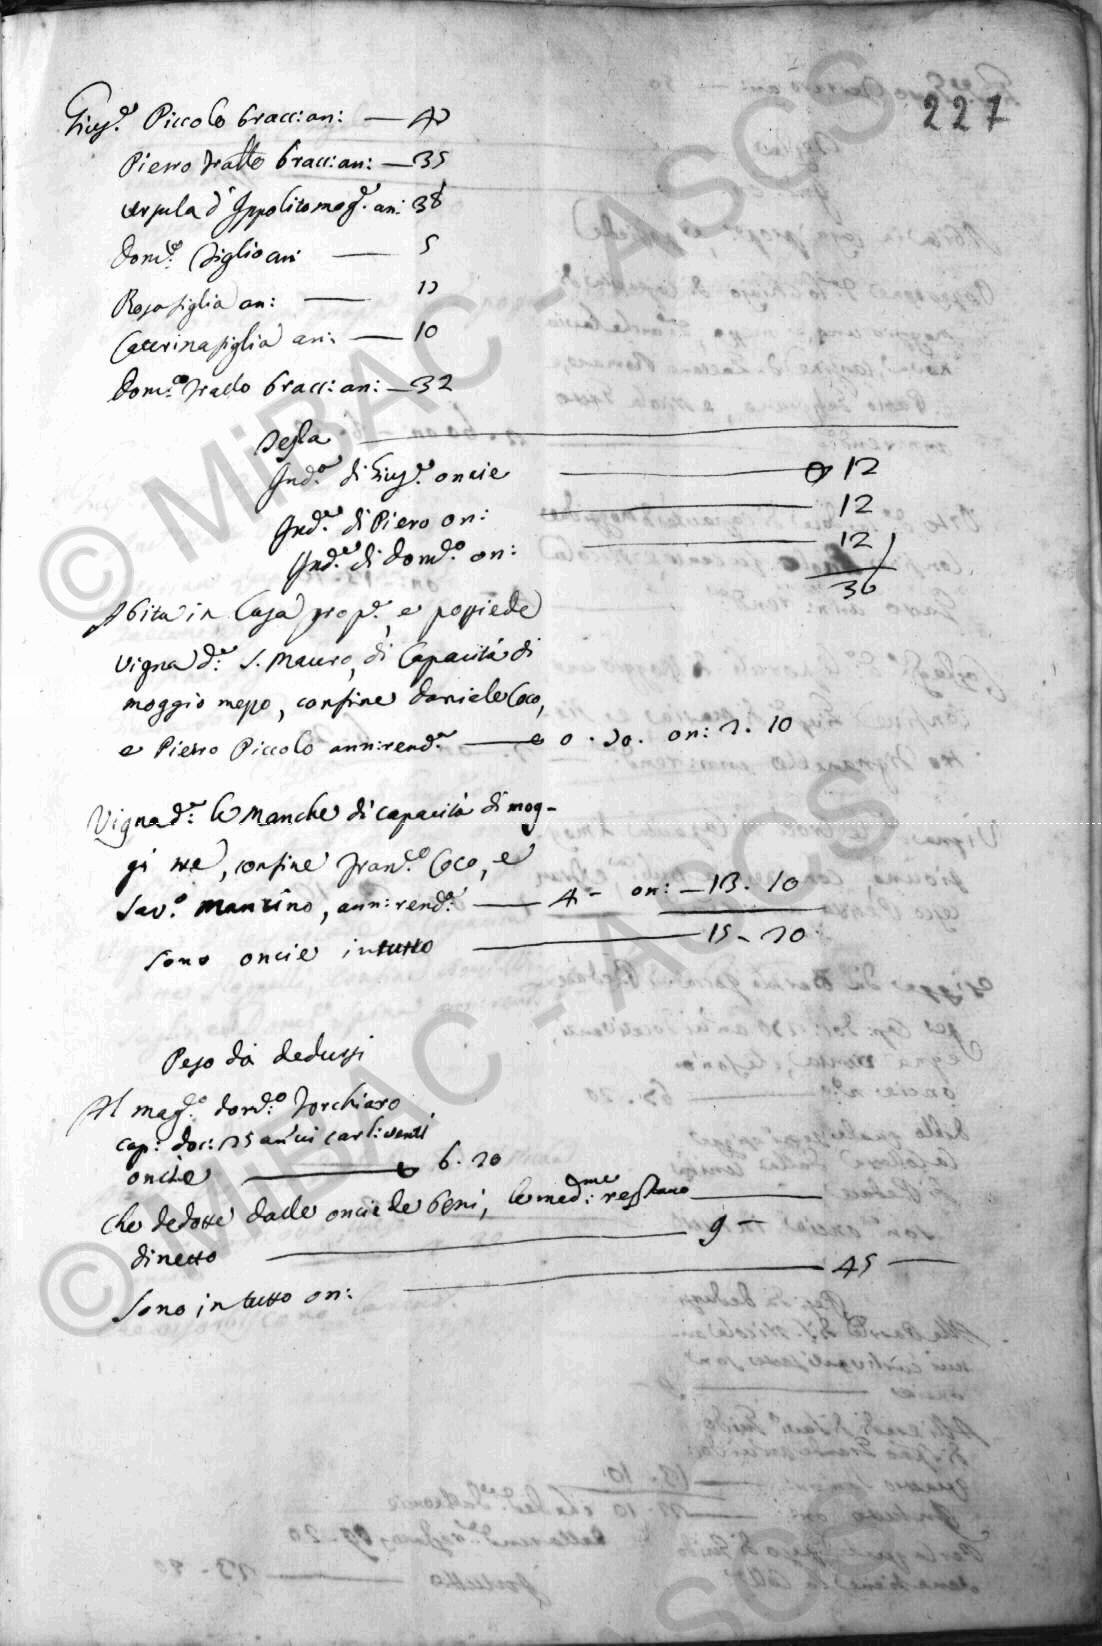 227
Gius.e Piccolo bracc: an: — 40
Pietro fratello bracc: an: — 35
Ursula d'Ippolito mog.e an: 38
Dom.co figlio an — 5
Rosa figlia an: — 12
Caterina figlia an: — 10
Dom.co fratello bracc: an: — 32
Testa
Ind.a di Gius.e oncie — 12
Ind.a di Piero on: — 12
Ind.a di Dom.co on: — 12
36
Abita in Casa prop.a, e possiede
Vigna d.a S. Mauro, di Capacità di
moggio mezzo, confine Daniele Coco,
e Pietro Piccolo ann: rend.a — 0 . 70. on: 2. 10
Vigna d.a le Manche di capacità di mog-
gi tre, confine Fran.co Coco, e
Sav.o Mancino, ann: rend.a — 4 - on: — 13. 10
Sono oncie in tutto — 15 - 20
Peso da dedursi
Al mag.co Dom.co Torchiaro
cap: doc: 25 an'ui carl: venti
oncie — 6. 20
Che dedotte dalle oncie de beni, le med.me restano
di netto — 9 —
Sono in tutto on: — 45 —
© MiBAC - ASCS
© MiBAC - ASCS